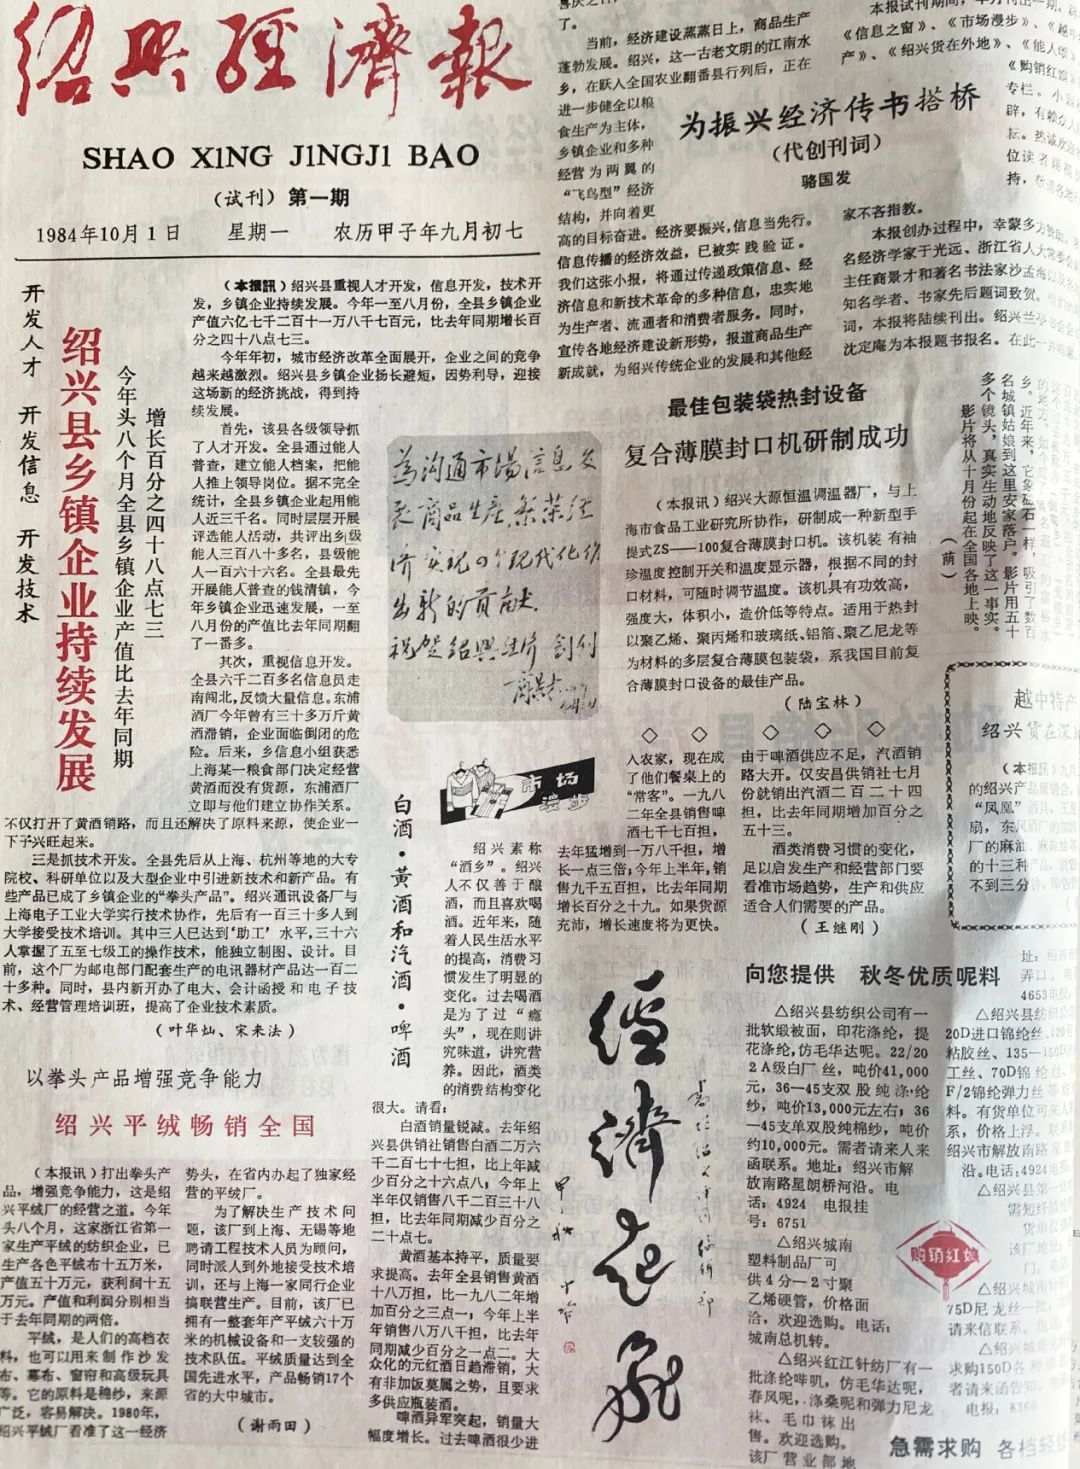 绍兴经济报
SHAO XING JINGJI BAO
(试刊) 第一期
1984年10月1日 星期一 农历甲子年九月初七
开发人才 开发信息 开发技术
绍兴县乡镇企业持续发展
今年头八个月全县乡镇企业产值比去年同期
增长百分之四十八点七三
(本报讯)绍兴县重视人才开发，信息开发，技术开
发，乡镇企业持续发展。今年一至八月份，全县乡镇企业
产值六亿七千二百十一万八千七百元，比去年同期增长百
分之四十八点七三。
今年年初，城市经济改革全面展开，企业之间的竞争
越来越激烈。绍兴县乡镇企业扬长避短，因势利导，迎接
这场新的经济挑战，得到持
续发展。
首先，该县各级领导抓
了人才开发。全县通过能人
普查，建立能人档案，把能
人推上领导岗位。据不完全
统计，全县乡镇企业起用能
人近三千名。同时层层开展
评选能人活动，共评出乡级
能人三百八十多名，县级能
人一百六十六名。全县最先
开展能人普查的钱清镇，今
年乡镇企业迅速发展，一至
八月份的产值比去年同期翻
了一番多。
其次，重视信息开发。
全县六千二百多名信息员走
南闯北，反馈大量信息。东浦
酒厂今年曾有三十多万斤黄
酒滞销，企业面临倒闭的危
险。后来，乡信息小组获悉
上海某一粮食部门决定经营
黄酒而没有货源，东浦酒厂
立即与他们建立协作关系。
不仅打开了黄酒销路，而且还解决了原料来源，使企业一
下子兴旺起来。
三是抓技术开发。全县先后从上海、杭州等地的大专
院校、科研单位以及大型企业中引进新技术和新产品。有
些产品已成了乡镇企业的“拳头产品”。绍兴通讯设备厂与
上海电子工业大学实行技术协作，先后有一百三十多人到
大学接受技术培训。其中三人已达到‘助工’水平，三十六
人掌握了五至七级工的操作技术，能独立制图、设计。目
前，这个厂为邮电部门配套生产的电讯器材产品达一百二
十多种。同时，县内新开办了电大、会计函授和电子技
术、经营管理培训班，提高了企业技术素质。
(叶华灿、宋来法)
以拳头产品增强竞争能力
绍兴平绒畅销全国
(本报讯)打出拳头产
品，增强竞争能力，这是绍
兴平绒厂的经营之道。今年
头八个月，这家浙江省第一
家生产平绒的纺织企业，已
生产各色平绒布十五万米，
产值五十万元，获利润十五
万元。产值和利润分别相当
于去年同期的两倍。
平绒，是人们的高档衣
料，也可以用来制作沙发
布、幕布、窗帘和高级玩具
等。它的原料是棉纱，来源
广泛，容易解决。1980年，
绍兴平绒厂看准了这一经济
势头，在省内办起了独家经
营的平绒厂。
为了解决生产技术问
题，该厂到上海、无锡等地
聘请工程技术人员为顾问，
同时派人到外地接受技术培
训，还与上海一家同行企业
搞联营生产。目前，该厂已
拥有一整套年产平绒六十万
米的机械设备和一支较强的
技术队伍。平绒质量达到全
国先进水平，产品畅销17个
省的大中城市。
(谢雨田)
為沟通市場信息发
展商品生产繁荣经
济实现四个现代化作
出新的贡献。
祝贺绍興经济 创刊
市场漫步
白酒·黄酒和汽酒·啤酒
绍兴素称
“酒乡”。绍兴
人不仅善于酿
酒，而且喜欢喝
酒。近年来，随
着人民生活水平
的提高，消费习
惯发生了明显的
变化。过去喝酒
是为了过“瘾
头”，现在则讲
究味道，讲究营
养。因此，酒类
的消费结构变化
很大。请看：
白酒销量锐减。去年绍
兴县供销社销售白酒二万六
千二百七十七担，比上年减
少百分之十六点八；今年上
半年仅销售八千二百三十八
担，比去年同期减少百分之
二十点七。
黄酒基本持平，质量要
求提高。去年全县销售黄酒
十八万担，比一九八二年增
加百分之三点一；今年上半
年销售八万八千担，比去年
同期减少百分之一点二。大
众化的元红酒日趋滞销，大
有非加饭莫属之势，且要求
多供应瓶装酒。
啤酒异军突起，销量大
幅度增长。过去啤酒很少进
入农家，现在成
了他们餐桌上的
“常客”。一九八
二年全县销售啤
酒七千七百担，
去年猛增到一万八千担，增
长一点三倍；今年上半年，销
售九千五百担，比去年同期
增长百分之十九。如果货源
充沛，增长速度将为更快。
由于啤酒供应不足，汽酒销
路大开。仅安昌供销社七月
份就销出汽酒二百二十四
担，比去年同期增加百分之
五十三。
酒类消费习惯的变化，
足以启发生产和经营部门要
看准市场趋势，生产和供应
适合人们需要的产品。
(王继刚)
了。
当前，经济建设蒸蒸日上，商品生产
蓬勃发展。绍兴，这一古老文明的江南水
乡，在跃入全国农业翻番县行列后，正在
进一步健全以粮
食生产为主体，
乡镇企业和多种
经营为两翼的
“飞鸟型”经济
结构，并向着更
高的目标奋进。经济要振兴，信息当先行。
信息传播的经济效益，已被实践验证。
我们这张小报，将通过传递政策信息、经
济信息和新技术革命的多种信息，忠实地
为生产者、流通者和消费者服务。同时，
宣传各地经济建设新形势，报道商品生产
新成就，为绍兴传统企业的发展和其他经
为振兴经济传书搭桥
(代创刊词)
骆国发
本报试刊期间，
《信息之窗》、《市场漫步》、
产》、《绍兴货在外地》、《能人
《购销红娘
专栏。小
辟，有赖
坛。热诚欢迎
位读者
持，
家不吝指教。
本报创办过程中，幸蒙多方
名经济学家于光远、浙江省人大常委
主任商景才和著名书法家沙孟海
知名学者、书家先后题词致贺。
词，本报将陆续刊出。绍兴兰亭书会
沈定庵为本报题书报名。在此一
最佳包装袋热封设备
复合薄膜封口机研制成功
(本报讯)绍兴大源恒温调温器厂，与上
海市食品工业研究所协作，研制成一种新型手
提式ZS——100复合薄膜封口机。该机装有袖
珍温度控制开关和温度显示器，根据不同的封
口材料，可随时调节温度。该机具有功效高，
强度大，体积小，造价低等特点。适用于热封
以聚乙烯、聚丙烯和玻璃纸、铝箔、聚乙尼龙等
为材料的多层复合薄膜包装袋，系我国目前复
合薄膜封口设备的最佳产品。
(陆宝林)
乡。近年来，它象磁石一样，吸引了数百
名城镇姑娘到这里安家落户。影片用五十
多个镜头，真实生动地反映了这一事实。
影片将从十月份起在全国各地上映。
(萌)
越中特产
绍兴货在深
(本报讯)
的绍兴产品
“凤凰”
扇，东风酒厂
厂的麻油
的十三种
不到三分
经济起飞
向您提供 秋冬优质呢料
△绍兴县纺织公司有一
批软缎被面，印花涤纶，提
花涤纶，仿毛华达呢。22/20
2A级白厂丝，吨价41,000
元，36—45支双股纯涤·纶
纱，吨价13,000元左右；36
—45支单双股纯棉纱，吨价
约10,000元。需者请来人来
函联系。地址：绍兴市解
放南路星朗桥河沿。电
话：4924 电报挂
号：6751
△绍兴城南
塑料制品厂可
供4分—2寸聚
乙烯硬管，价格面
洽，欢迎选购。电话：
城南总机转。
△绍兴红江针纺厂有一
批涤纶哔叽，仿毛华达呢，
春风呢，、涤桑呢和弹力尼龙
袜、毛巾袜出
售。欢迎选购。
该厂营业部地
址：
弄口。
4653
△绍兴县纺织
20D进口锦纶丝、
粘胶丝、135—150D
工丝、70D锦纶丝、
F/2锦纶弹力丝等
料。有货单位可来人
系，价格上浮。联
绍兴市解放南路
沿。电话，4924
△绍兴县第一
购销红娘
75D尼龙丝一批，
请来信联系。
求购150D各
者请来函告知。
电报：
急需求购 各档